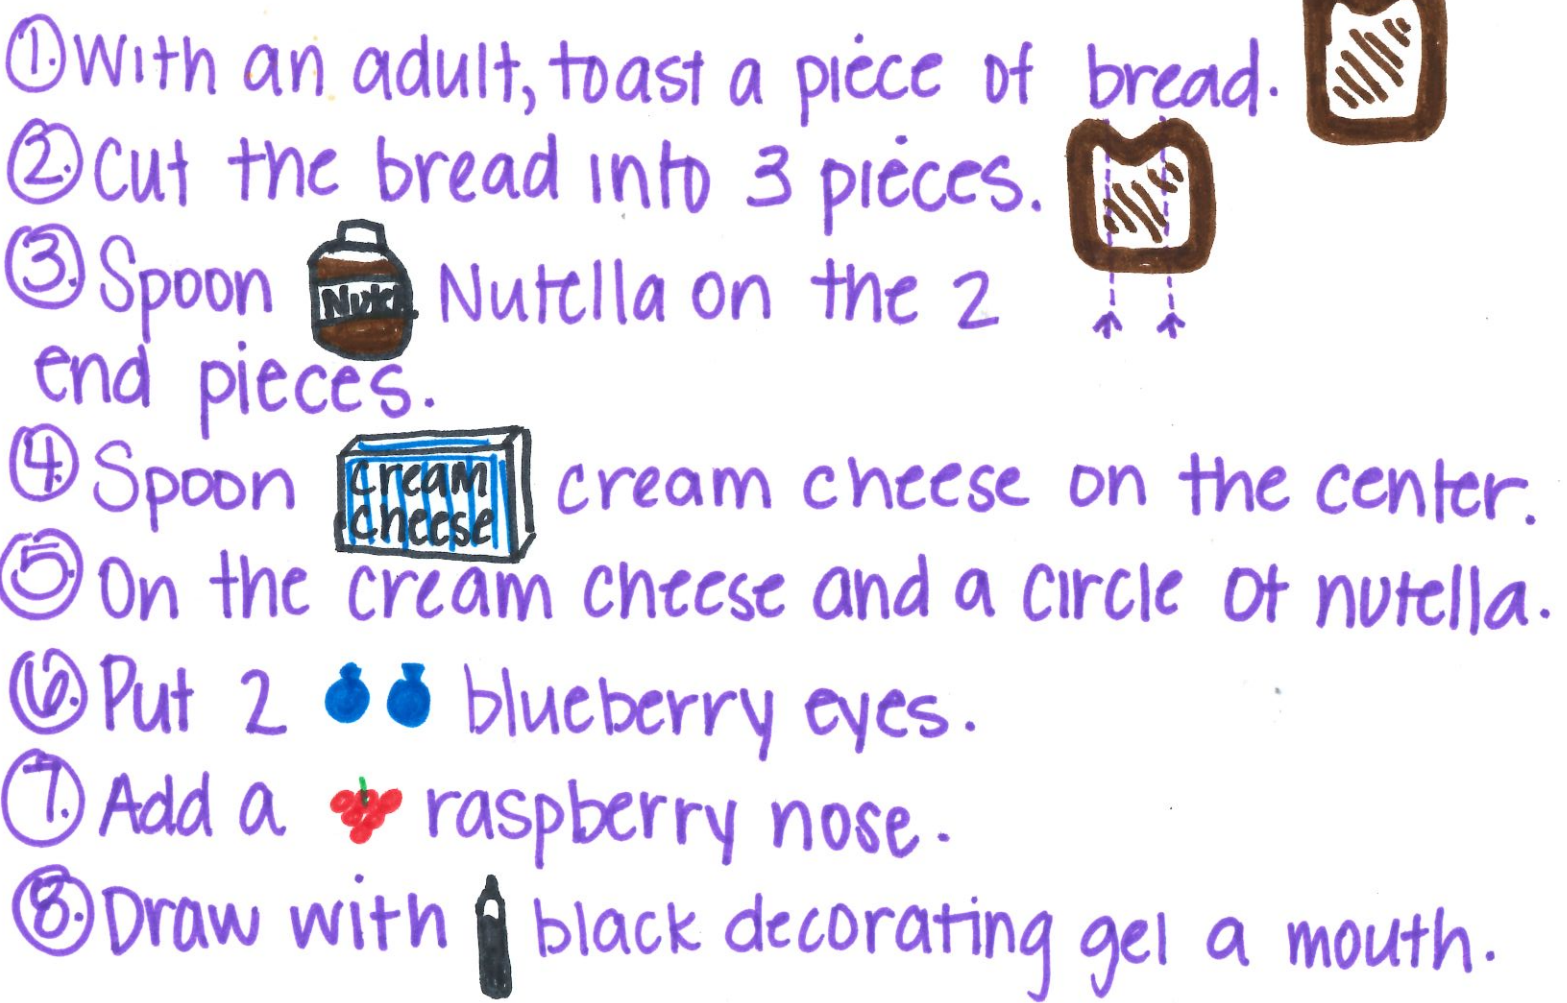 1. With an adult, toast a piece of bread.
2. Cut the bread into 3 pieces.
3. Spoon Nute Nutella on the 2
end pieces.
4. Spoon cream cheese cream cheese on the center.
5. On the cream cheese and a circle of nutella.
6. Put 2 blueberry eyes.
7. Add a raspberry nose.
8. Draw with black decorating gel a mouth.